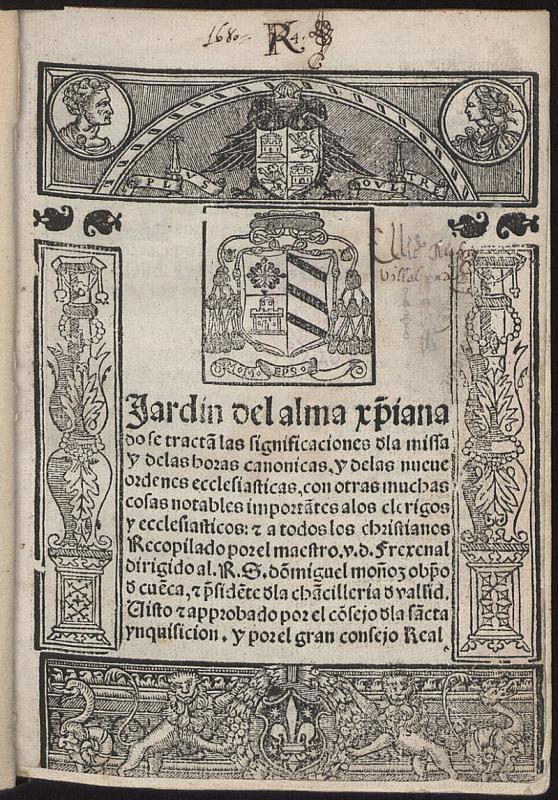 1680
R 4.
PLVS OVLTRE
EPS
Jardin del alma xp̄iana
do se tractā las significaciones dla missa
y delas horas canonicas, y delas nueue
ordenes ecclesiasticas, con otras muchas
cosas notables importātes alos clerigos
y ecclesiasticos: ⁊ a todos los christianos
Recopilado por el maestro. v. d. Frexenal
dirigido al. R. S. dō miguel moñoz obp̄o
d cuēca, ⁊ p̄sidēte dla chācilleria d vallid.
Visto ⁊ approbado por el cōsejo dla sācta
ynquisicion. y por el gran consejo Real